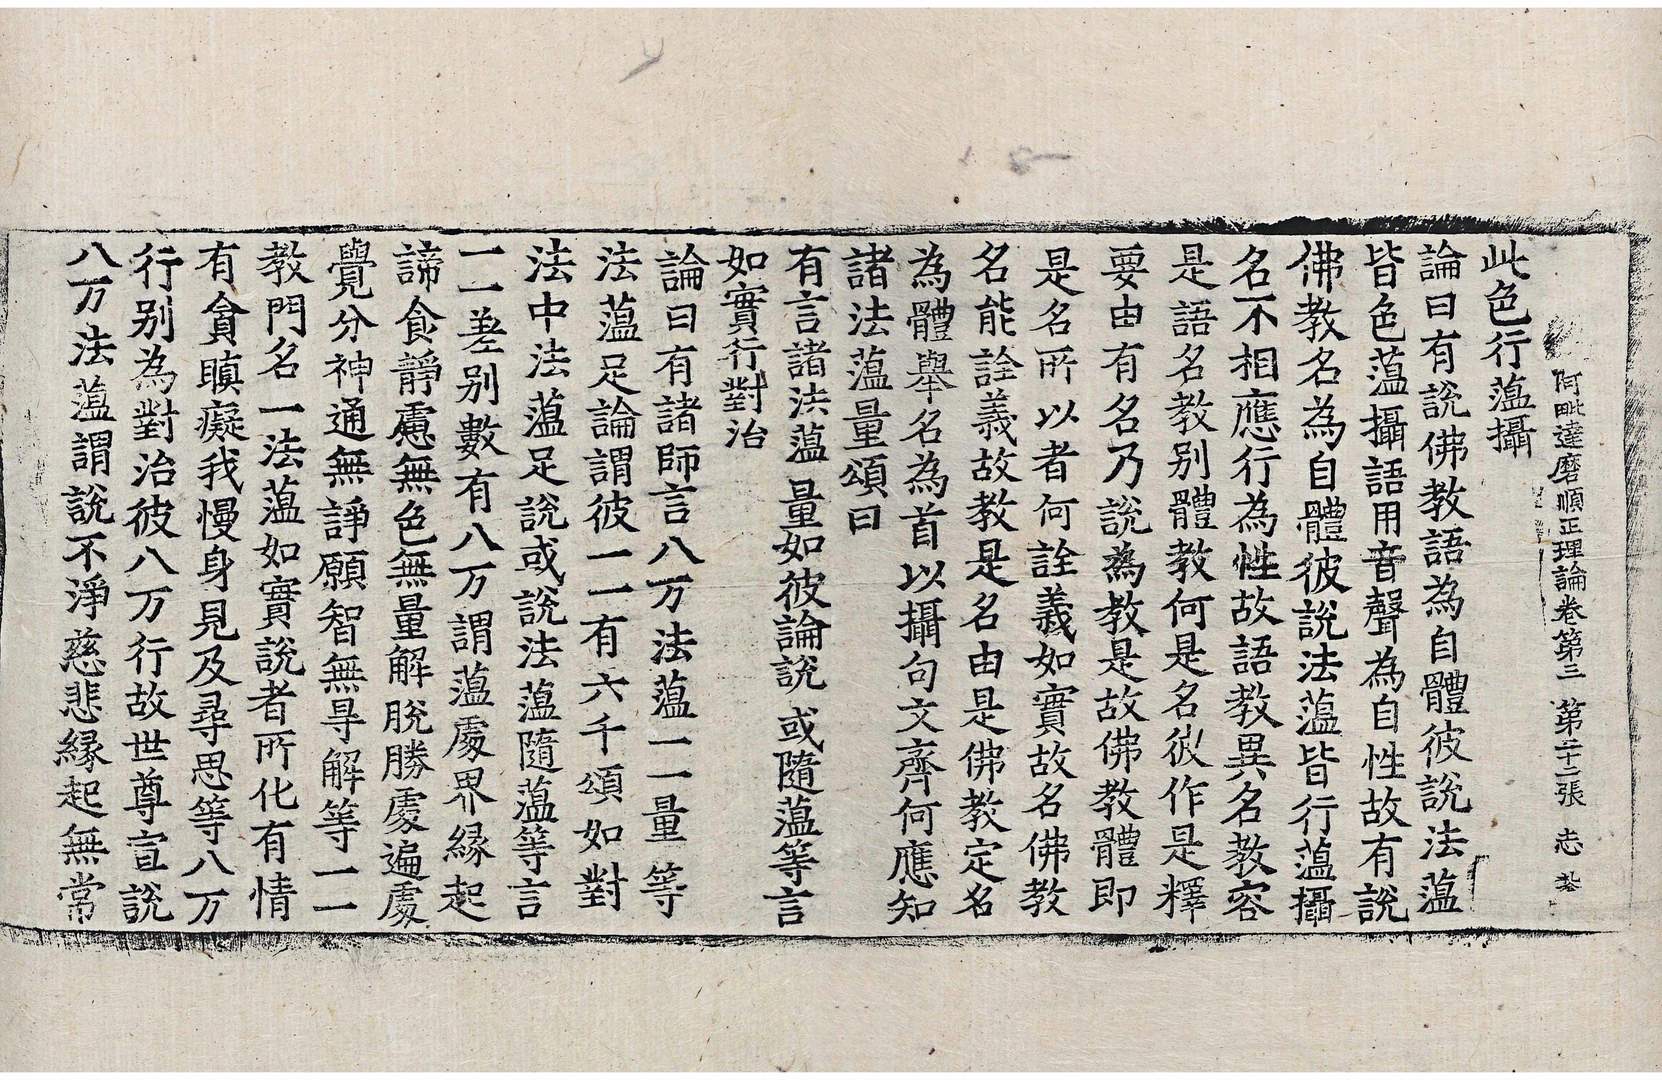 阿毗達磨順正理論卷第三 第二十二張 志
此色行薀攝
論曰有說佛教語為自體彼說法薀
皆色薀攝語用音聲為自性故有說
佛教名為自體彼說法薀皆行薀攝
名不相應行為性故語教異名教容
是語名教別體教何是名彼作是釋
要由有名乃說為教是故佛教體即
是名所以者何詮義如實故名佛教
名能詮義故教是名由是佛教定名
為體舉名為首以攝句文齊何應知
諸法薀量頌曰
有言諸法薀 量如彼論說 或隨薀等言
如實行對治
論曰有諸師言八万法薀一一量等
法薀足論謂彼一一有六千頌如對
法中法薀足說或說法薀隨薀等言
一一差别數有八万謂薀處界緣起
諦食靜慮無色無量解脫勝處遍處
覺分神通無諍願智無㝵解等一一
教門名一法薀如實說者所化有情
有貪瞋癡我慢身見及尋思等八万
行别為對治彼八万行故世尊宣說
八万法薀謂說不淨慈悲緣起無常